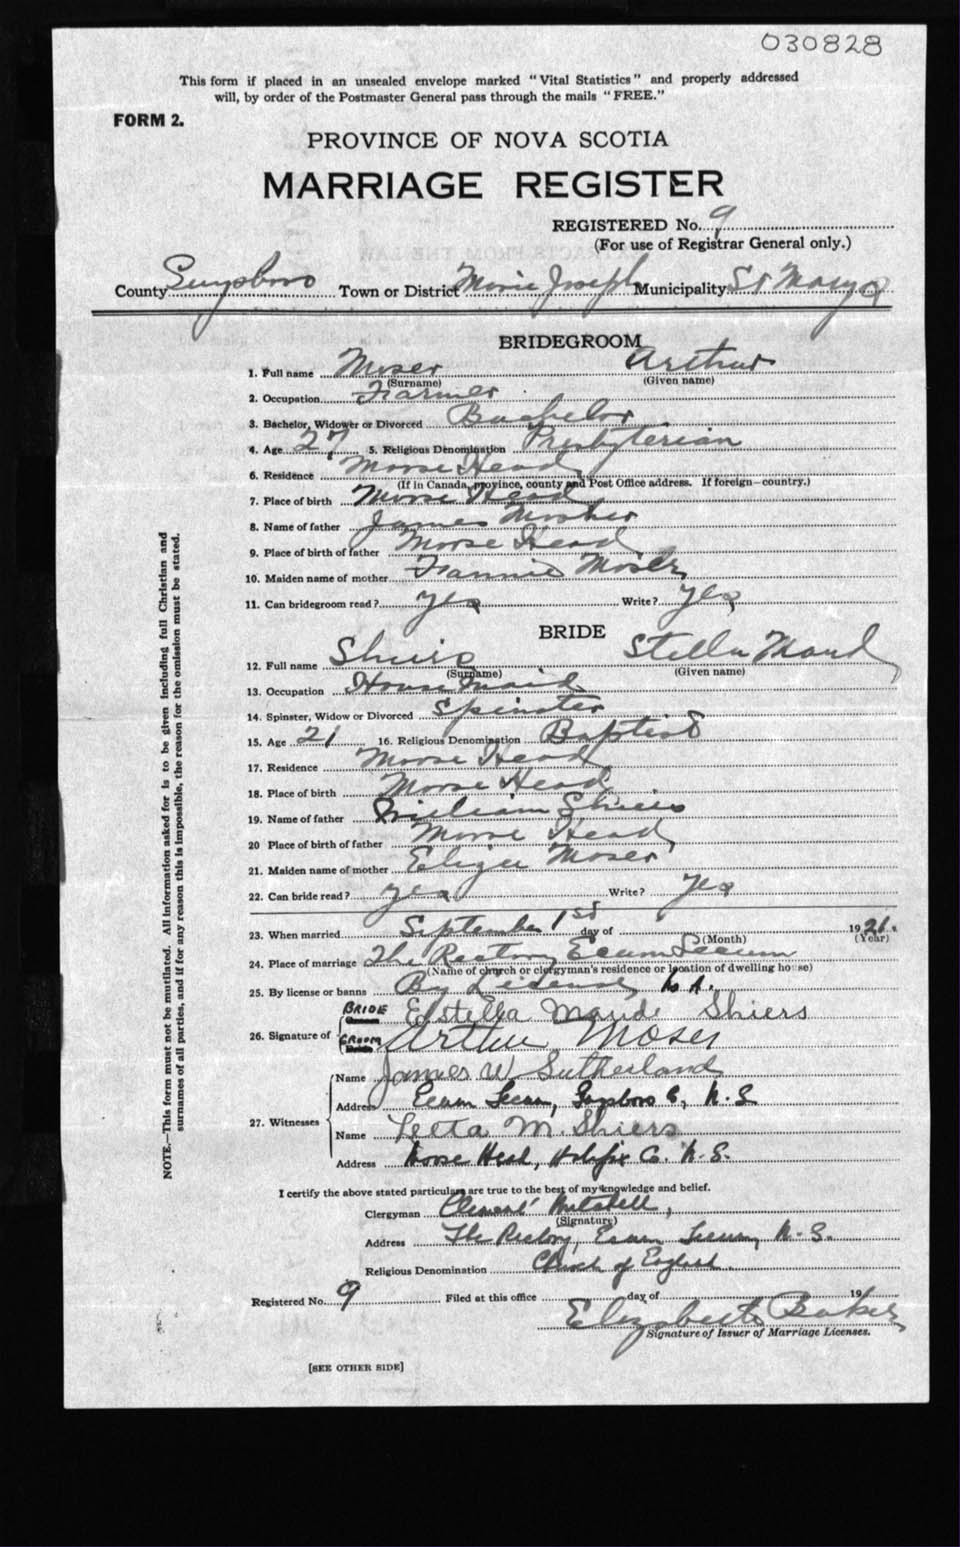 030828
This form if placed in an unsealed envelope marked "Vital Statistics" and properly addressed
will, by order of the Postmaster General pass through the mails "FREE."
FORM 2.
PROVINCE OF NOVA SCOTIA
MARRIAGE REGISTER
REGISTERED No. 9
(For use of Registrar General only.)
County Guysboro Town or District Marie Joseph Municipality St Marys
BRIDEGROOM
1. Full name Moser Arthur
(Surname) (Given name)
2. Occupation Farmer
3. Bachelor, Widower or Divorced Bachelor
4. Age 27 5. Religious Denomination Presbyterian
6. Residence Moose Head
(If in Canada, province, county and Post Office address. If foreign—country.)
7. Place of birth Moose Head
8. Name of father James Mosher
9. Place of birth of father Moose Head
10. Maiden name of mother Fannie Moser
11. Can bridegroom read? yes Write? yes
BRIDE
12. Full name Shiers Stella Maud
(Surname) (Given name)
13. Occupation House Maid
14. Spinster, Widow or Divorced Spinster
15. Age 21 16. Religious Denomination Baptist
17. Residence Moose Head
18. Place of birth Moose Head
19. Name of father William Shiers
20 Place of birth of father Moose Head
21. Maiden name of mother Eliza Moser
22. Can bride read? yes Write? yes
23. When married September 1st day of 1921.
(Month) (Year)
24. Place of marriage The Rectory Ecum Secum
(Name of church or clergyman's residence or location of dwelling house)
25. By license or banns By License
26. Signature of BRIDE Estella Maude Shiers
GROOM Arthur Moser
27. Witnesses
Name James W Sutherland
Address Ecum Secum, Guysboro C, N.S
Name Letta M. Shiers
Address Moose Head, Halifax Co. N.S.
I certify the above stated particulars are true to the best of my knowledge and belief.
Clergyman Clement Mitchell,
(Signature)
Address The Rectory, Ecum Secum, N.S.
Religious Denomination Church of England.
Registered No. 9 Filed at this office day of 19
Elizabeth Baker
Signature of Issuer of Marriage Licenses.
[SEE OTHER SIDE]
NOTE.—This form must not be mutilated. All information asked for is to be given including full Christian and
surnames of all parties, and if for any reason this is impossible, the reason for the omission must be stated.